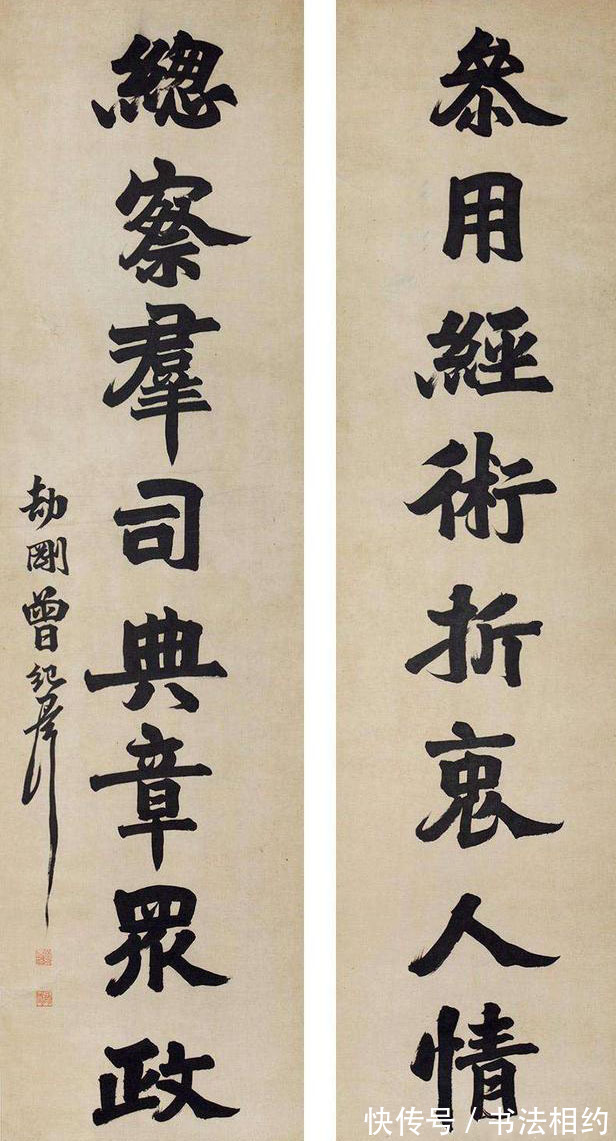 參用經術折衷人情
總察羣司典章眾政
劼剛曾紀澤
快传号 / 书法相约